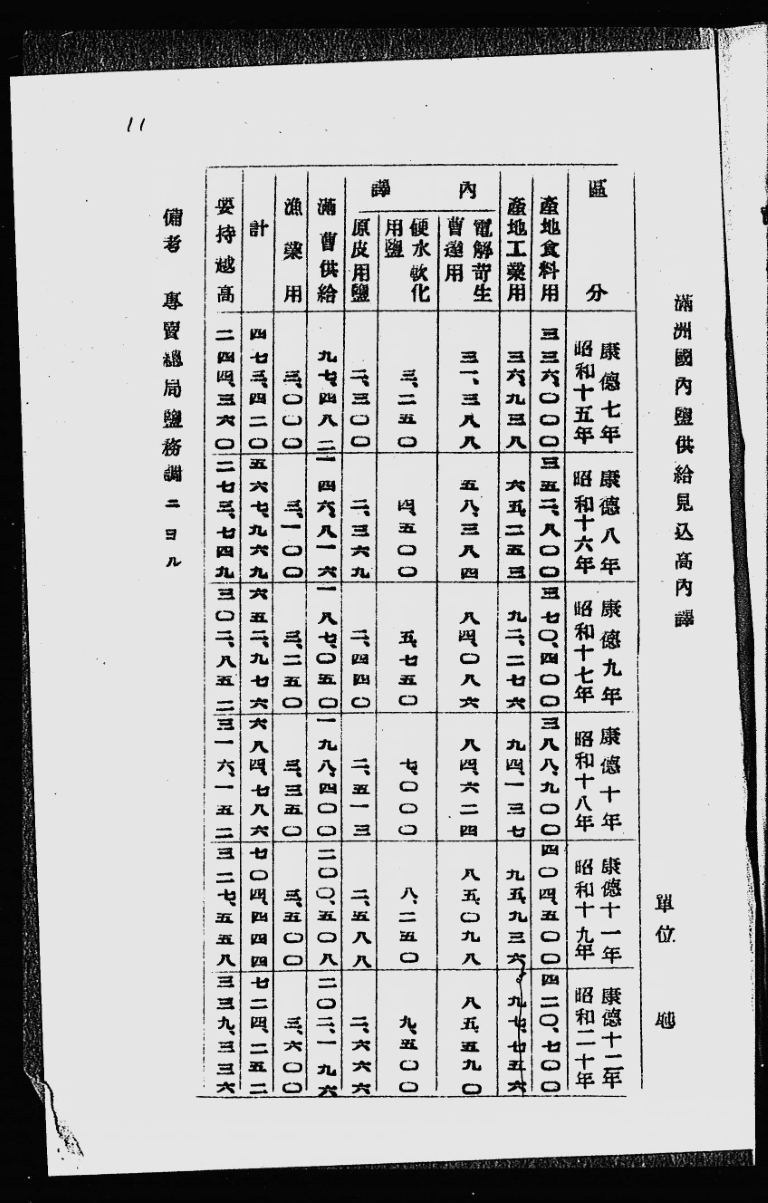 11
滿洲國內鹽供給見込高內譯
單位 瓲
區分 康德七年 昭和十五年 康德八年 昭和十六年 康德九年 昭和十七年 康德十年 昭和十八年 康德十一年 昭和十九年 康德十二年 昭和二十年
產地食料用 三三六、〇〇〇 三五二、八〇〇 三七〇、四〇〇 三八八、九〇〇 四〇四、五〇〇 四二〇、七〇〇
產地工業用 三六、九三八 六五、二五三 九二、二七六 九四、一三七 九五、九三六 九七、七五六
內譯
電解苛生曹達用 三一、三八八 五八、三八四 八四、〇八六 八四、六二四 八五、〇九八 八五、五九〇
硬水軟化用鹽 三、二五〇 四、五〇〇 五、七五〇 七、〇〇〇 八、二五〇 九、五〇〇
原皮用鹽 二、三〇〇 二、三六九 二、四四〇 二、五一三 二、五八八 二、六六六
滿曹供給 九七、四八二 一四六、八一六 一八七、〇五〇 一九八、四〇〇 二〇〇、五〇八 二〇二、一九六
漁業用 三、〇〇〇 三、一〇〇 三、二五〇 三、三五〇 三、五〇〇 三、六〇〇
計 四七三、四二〇 五六七、九六九 六五二、九七六 六八四、七八六 七〇四、四四四 七二四、二五二
要持越高 二四四、三六〇 二七三、七四九 三〇二、八五二 三一六、一五二 三二七、五五八 三三九、三三六
備考 專賣總局鹽務調ニヨル